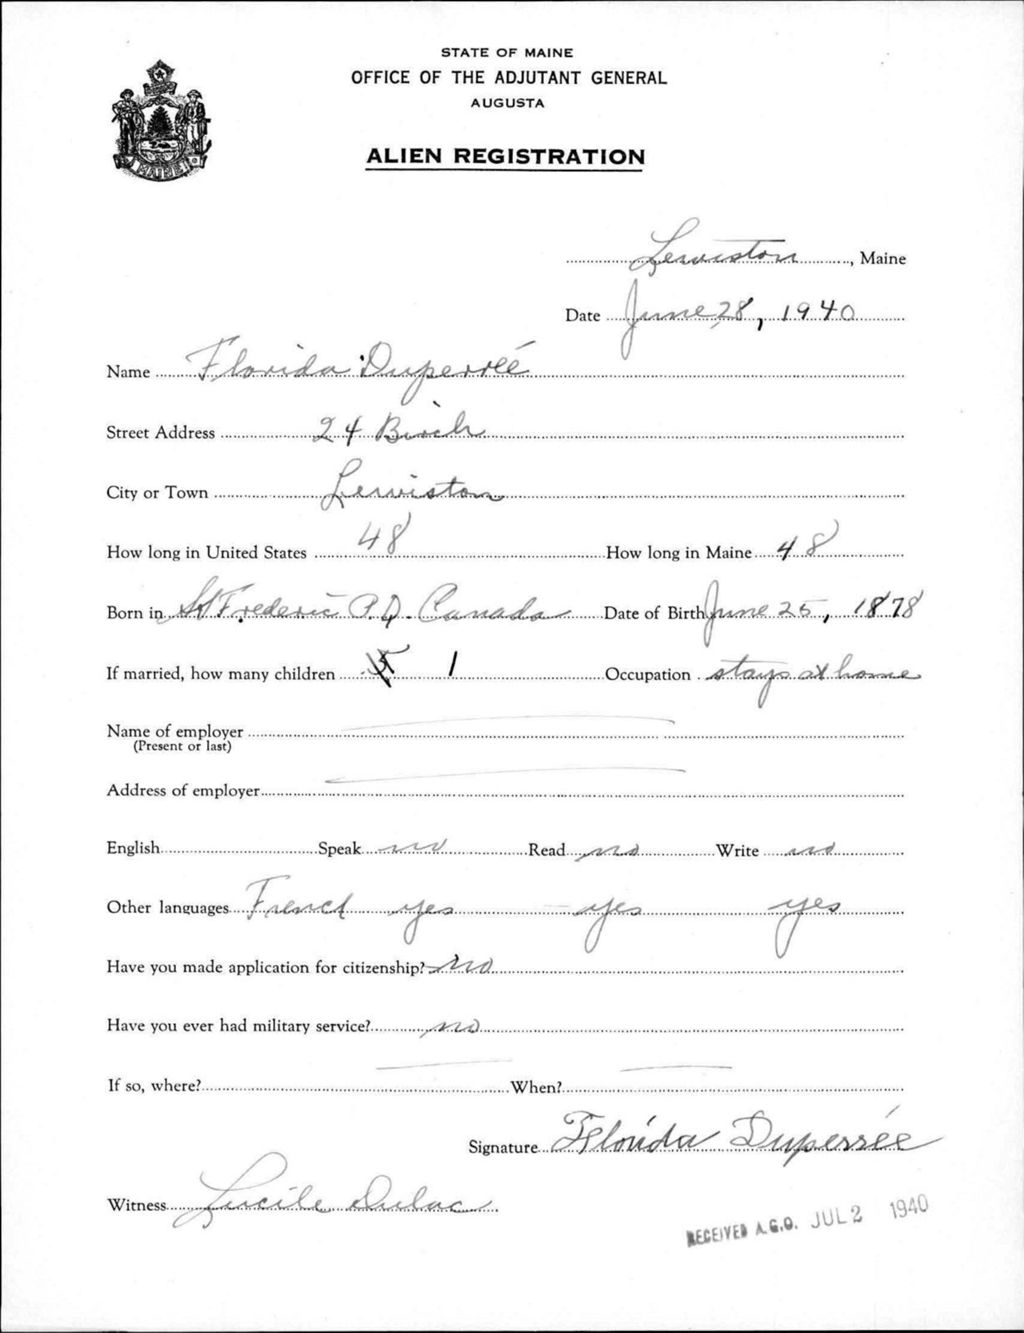 STATE OF MAINE
OFFICE OF THE ADJUTANT GENERAL
AUGUSTA
ALIEN REGISTRATION
MAINE
Lewiston, Maine
Date June 28, 1940
Name Florida Duperrée
Street Address 24 Birch
City or Town Lewiston
How long in United States 48 How long in Maine 48
Born in St Frederic P.Q. Canada Date of Birth June 25, 1878
If married, how many children 1 Occupation stays at home
Name of employer
(Present or last)
Address of employer
English Speak no Read no Write no
Other languages French yes yes yes
Have you made application for citizenship? no
Have you ever had military service? no
If so, where? When?
Signature Florida Duperrée
Witness Lucile Dulac
RECEIVED A.G.O. JUL 2 1940